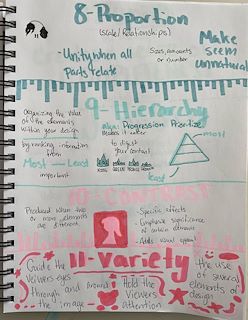 8-Proportion
(scale/relationships)
Make
seem
unnatural
-Unity when all
Parts relate
Sizes, amounts
or number
9-Hierarchy
Organizing the value
of the elements
within your design
by ranking information
from
Most — Least
important
aka: Progression Prioritize
Makes it easier
to digest
your content
most
Least
10-CONTRAST
Produced when two
or more elements are
different
Specific effects
Emphasize significance
of certain elements
Adds visual appeal
11-Variety
Guide the
viewers eyes
through and around
the image
Hold the
viewers
attention
the use
of several
elements of
design